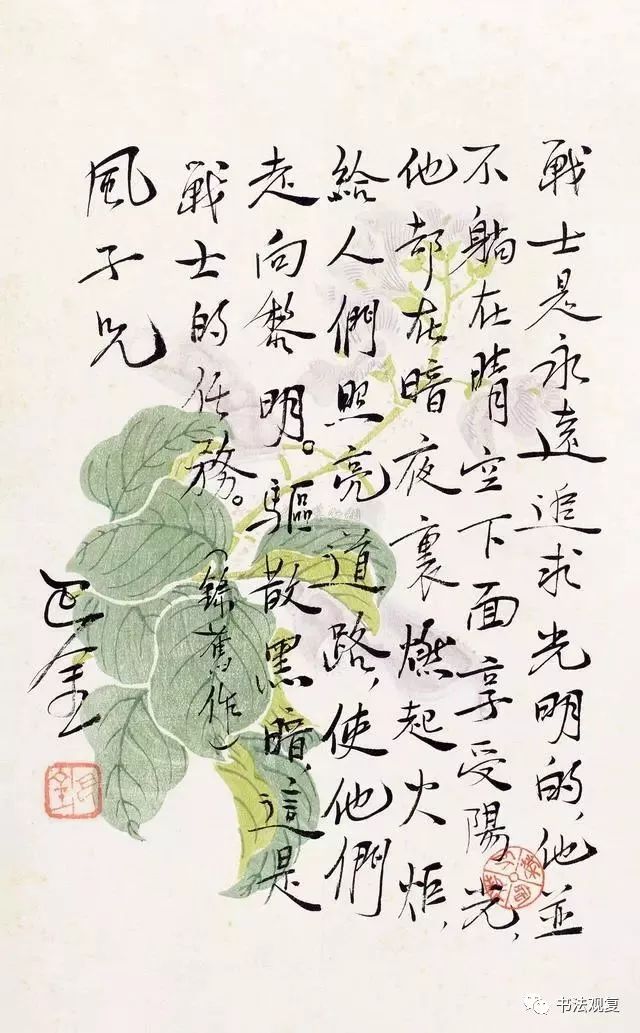 戰士是永遠追求光明的,他並
不躺在晴空下面享受陽光,
他却在暗夜裏燃起火炬,
給人們照亮道路,使他們
走向黎明。驅散黑暗,這是
戰士的任務。(錄舊作)
風子兄
巴金
书法观复